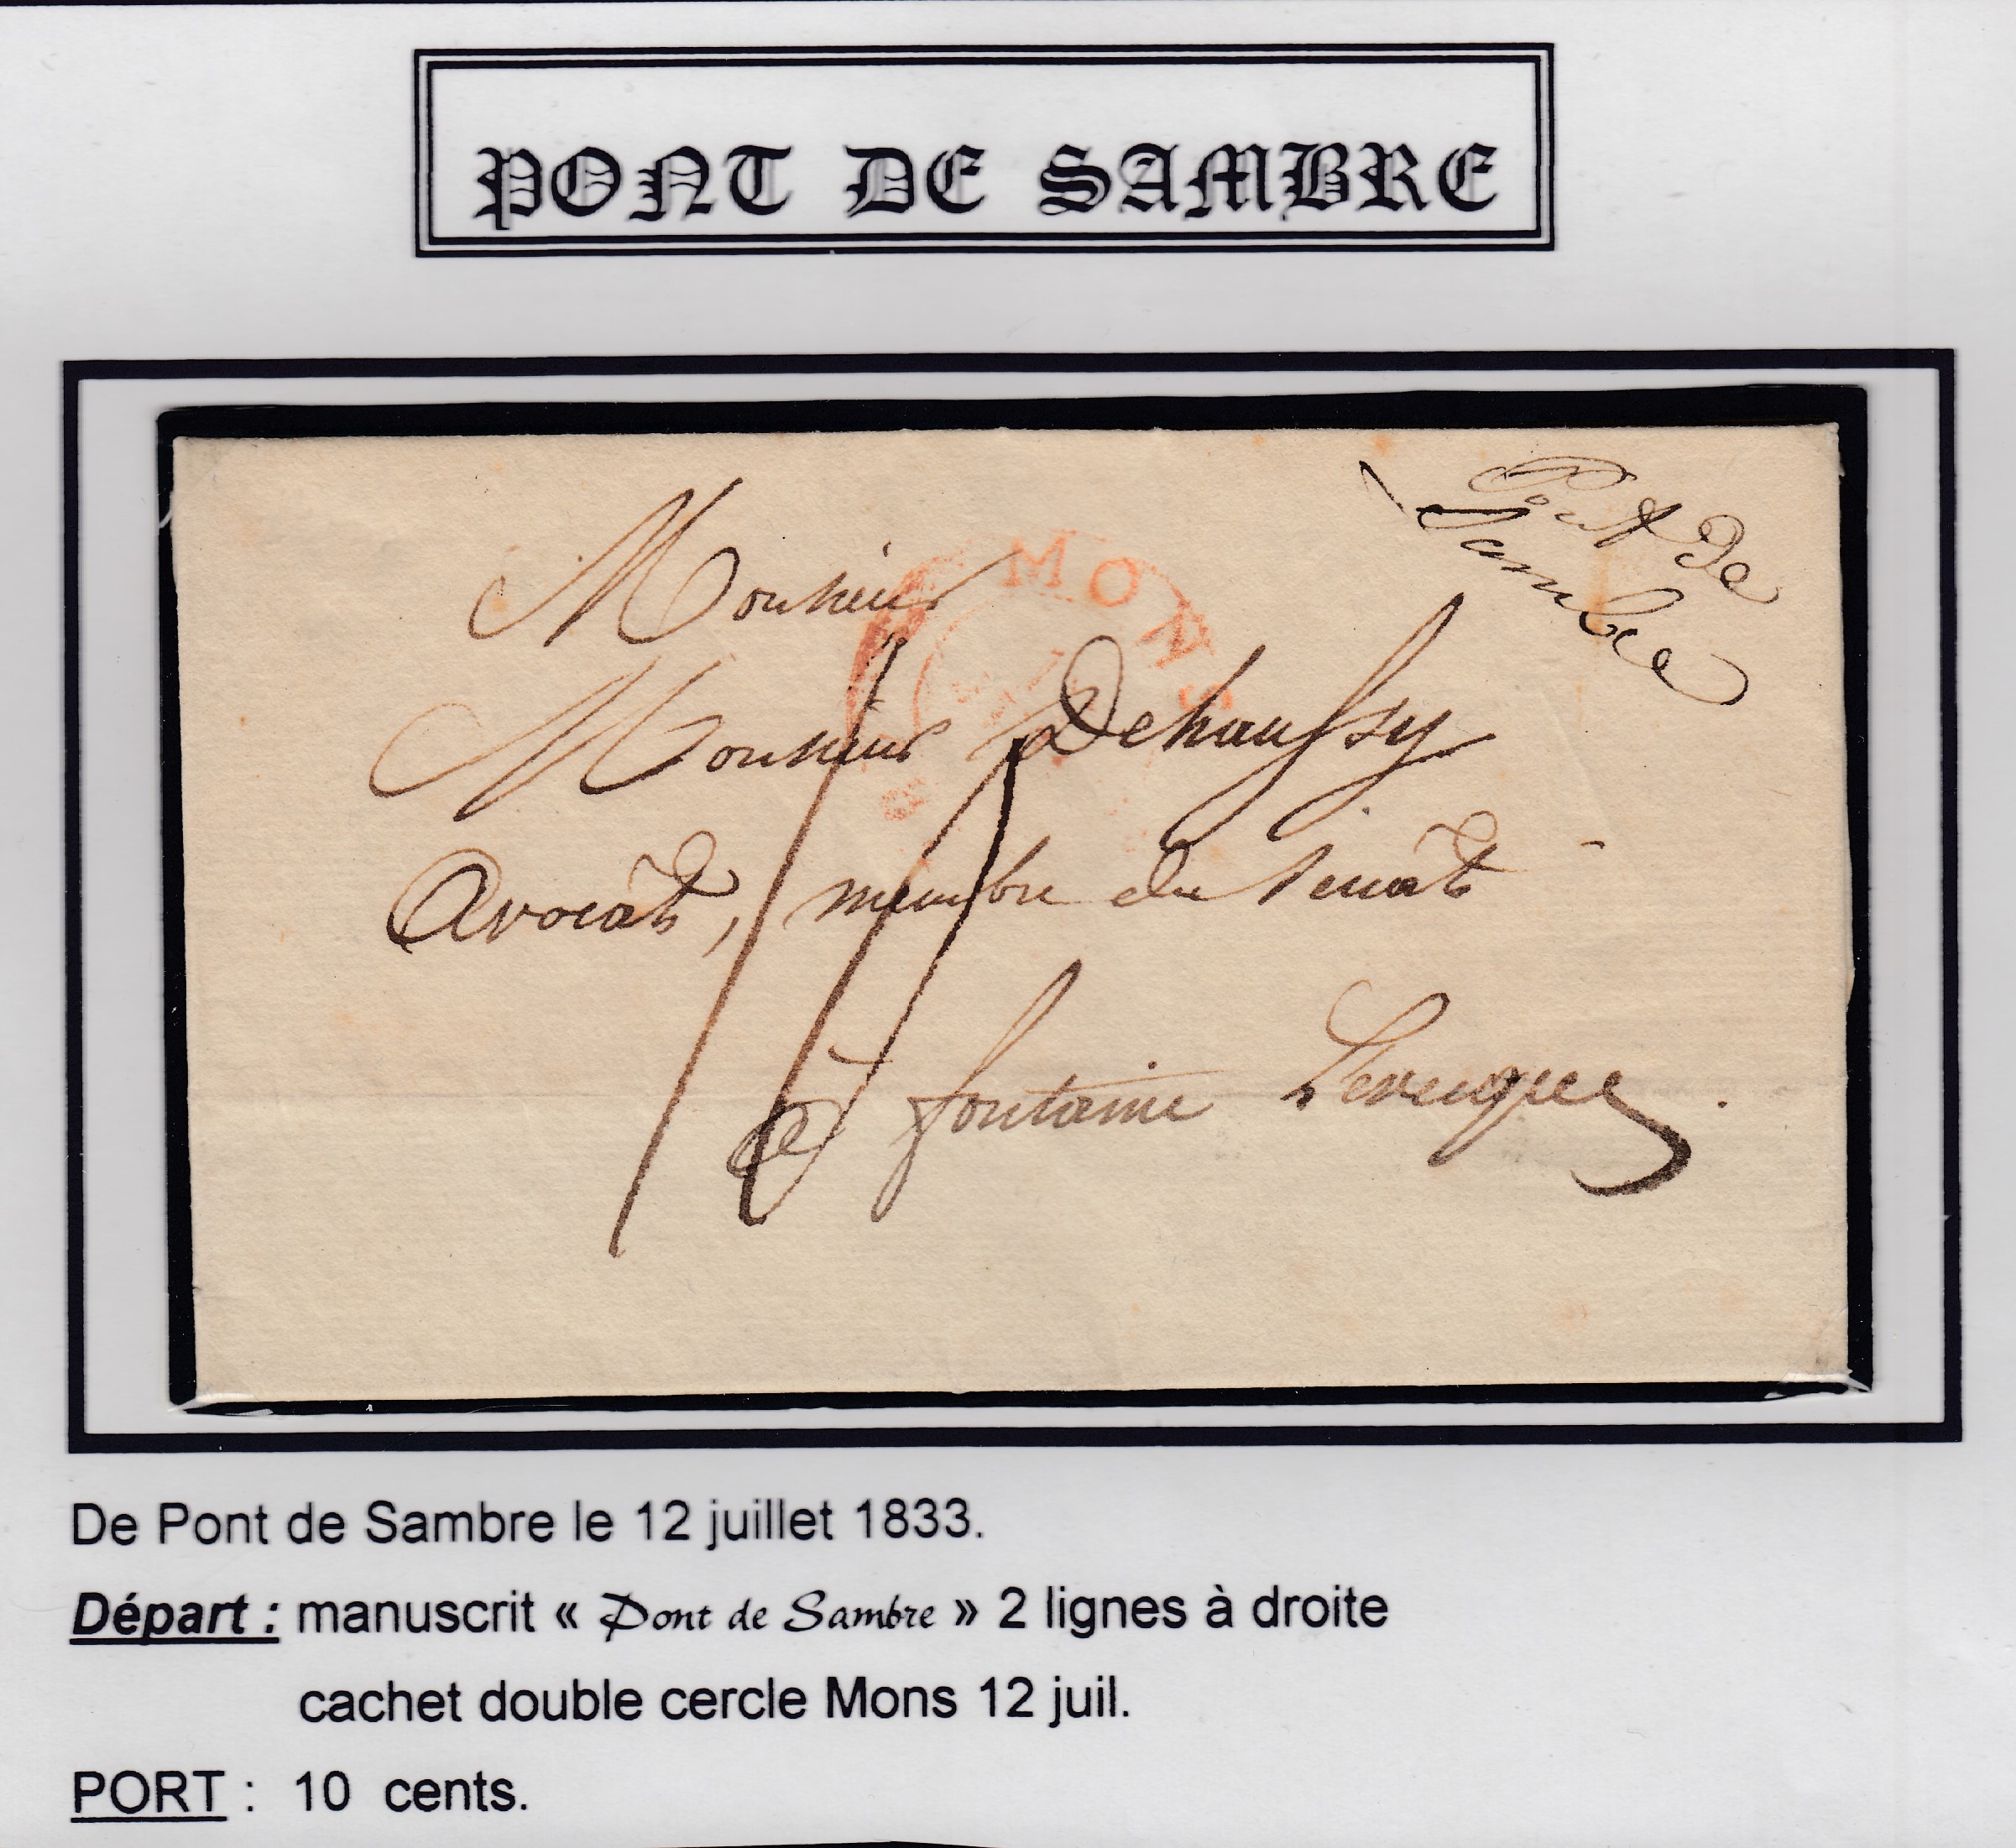 PONT DE SAMBRE
Pont de
Sambre
MONS
Monsieur
Monsieur Dehaussy
Avocat, membre du Sénat
à fontaine Leveque.
De Pont de Sambre le 12 juillet 1833.
Départ : manuscrit « Pont de Sambre » 2 lignes à droite
cachet double cercle Mons 12 juil.
PORT : 10 cents.